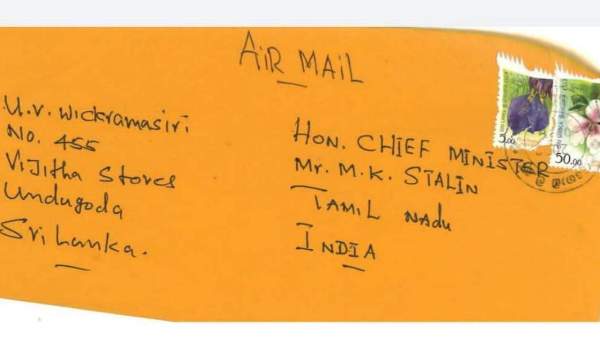 AIR MAIL
U.V. Wickramasiri
No. 455
Vijitha Stores
Undugoda
Sri Lanka.
HON. CHIEF MINISTER
Mr. M.K. STALIN
TAMIL NADU
INDIA
5.00
50.00